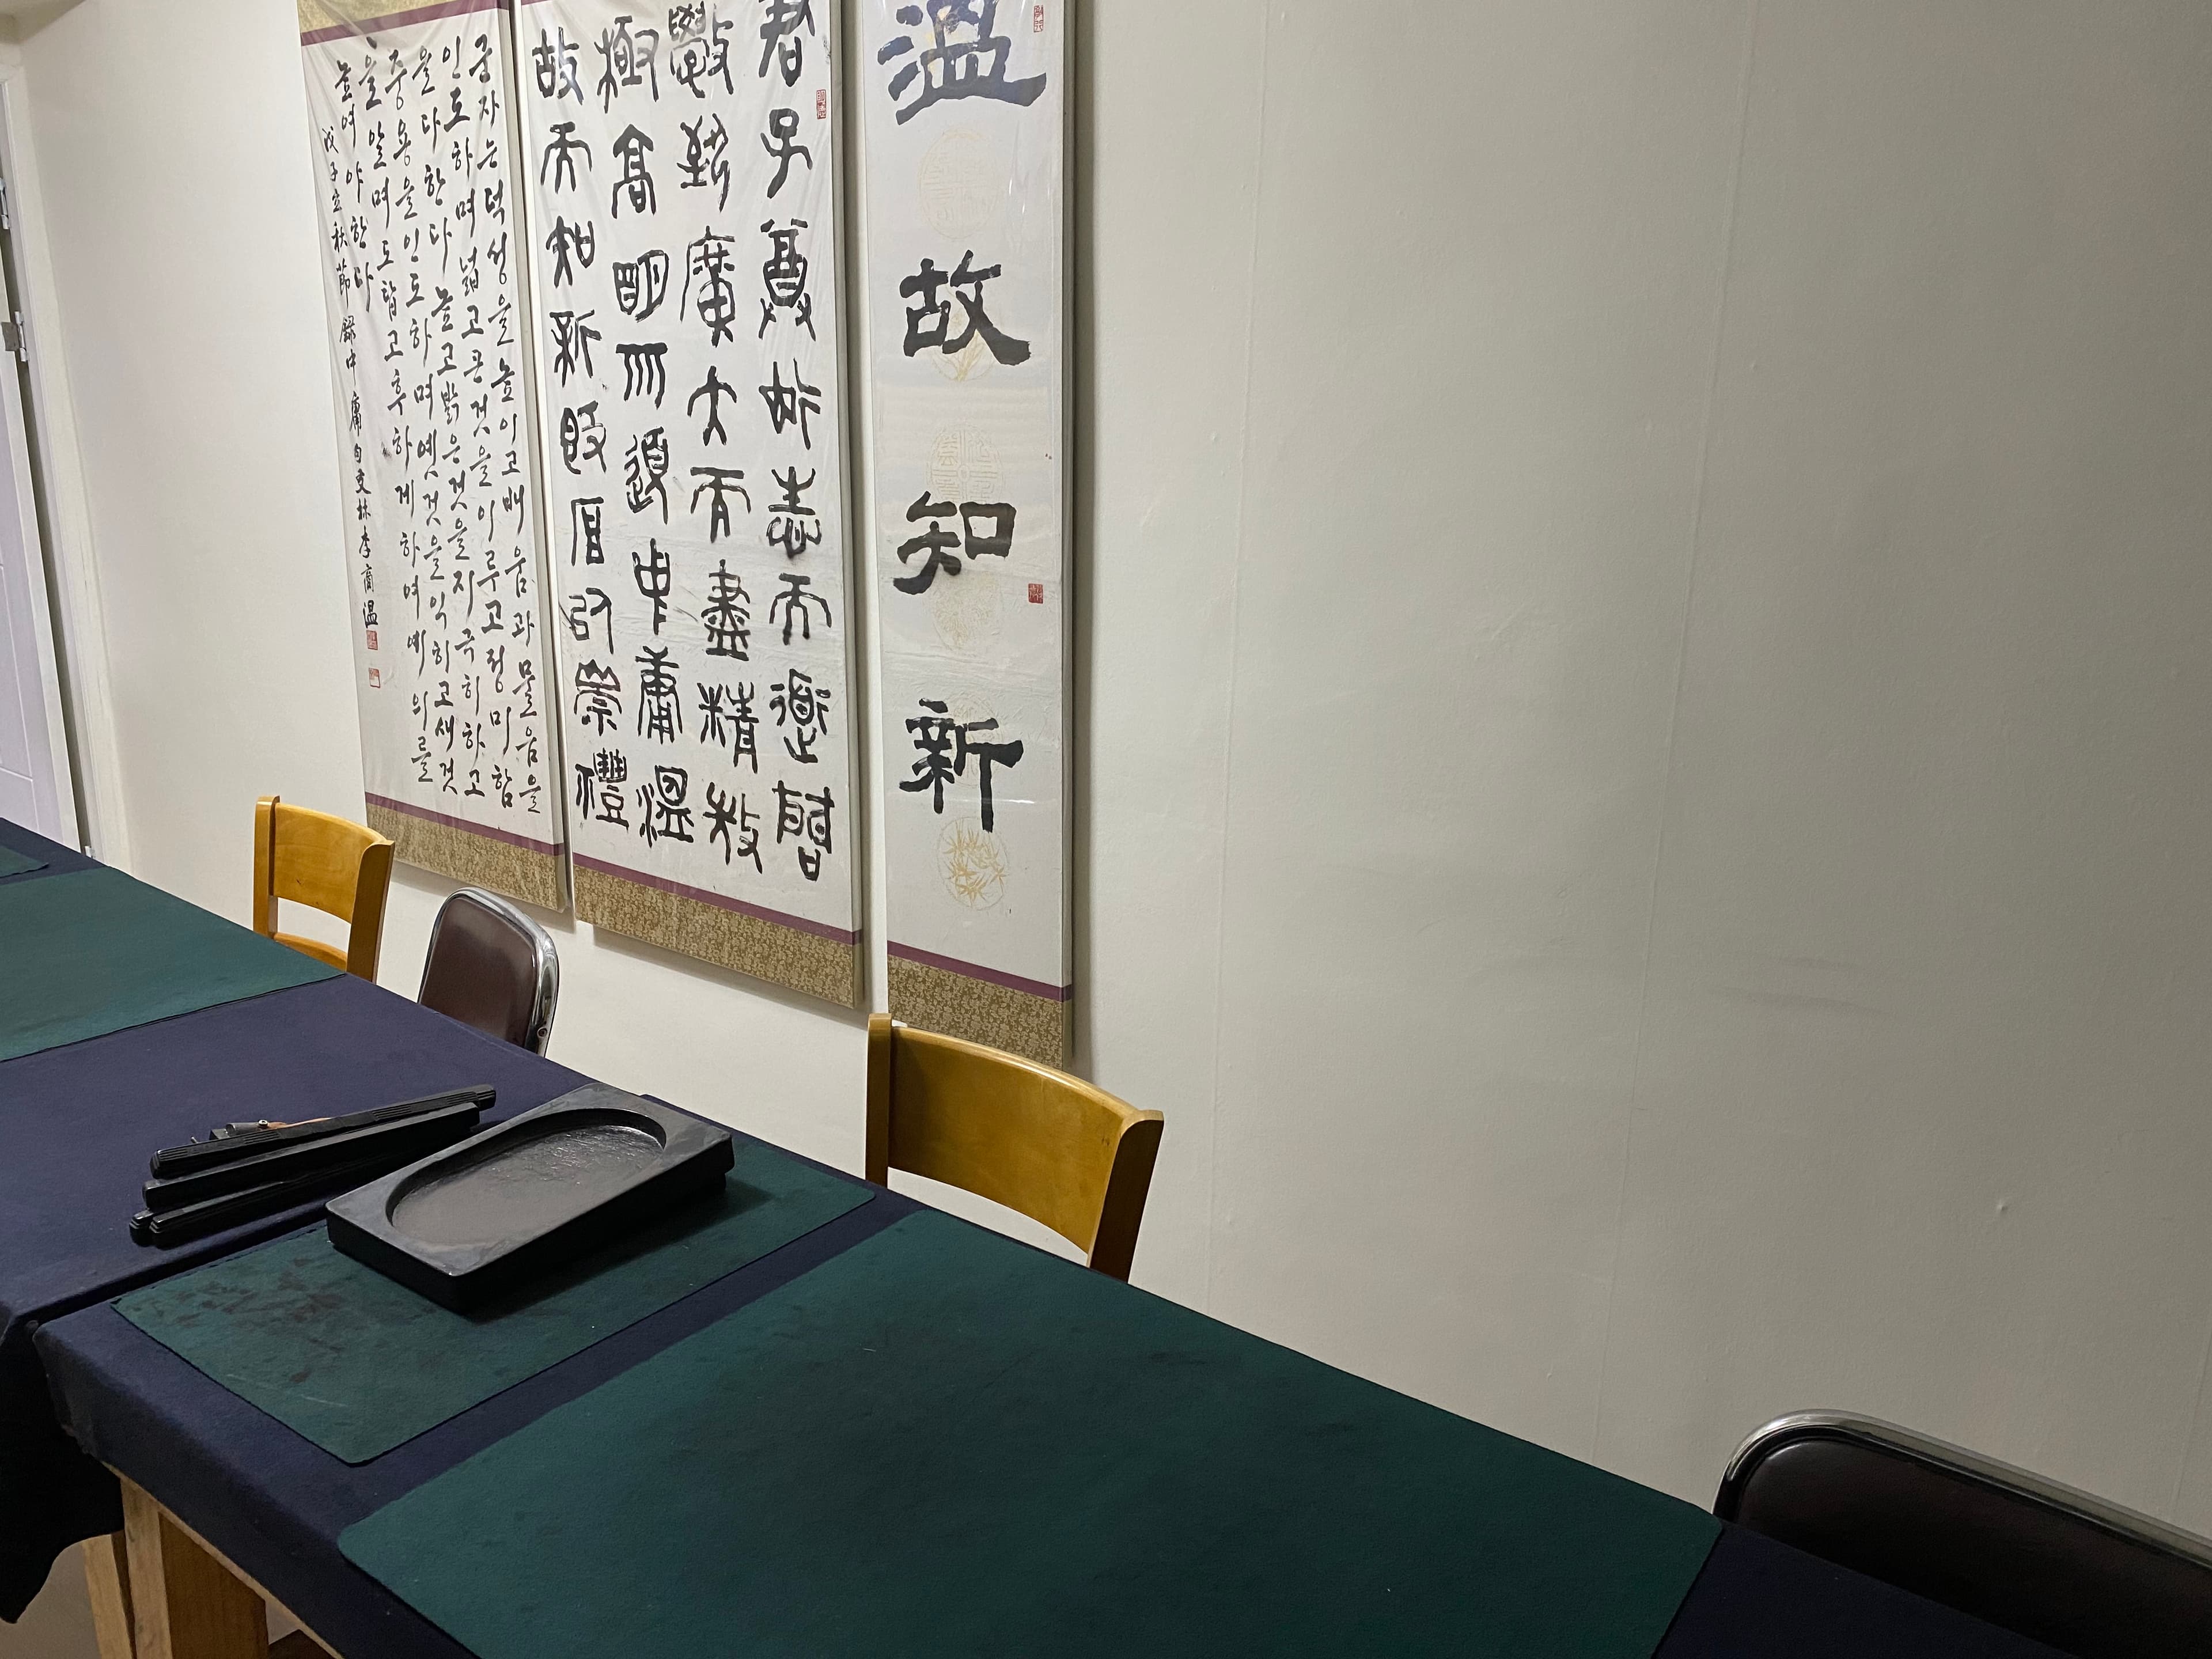 溫故知新
君子尊德性而道問
學致廣大而盡精微
極高明而道中庸溫
故而知新敦厚以崇禮
군자는덕성을높이고배움과물음을
인도하며넓고큰것을이루고정미함
을다한다높고밝은것을지극히하고
중용을인도하며옛것을익히고새것
을알며도탑고후하게하여예의를
높여야한다
戊子立秋節錄中庸句林李商溫